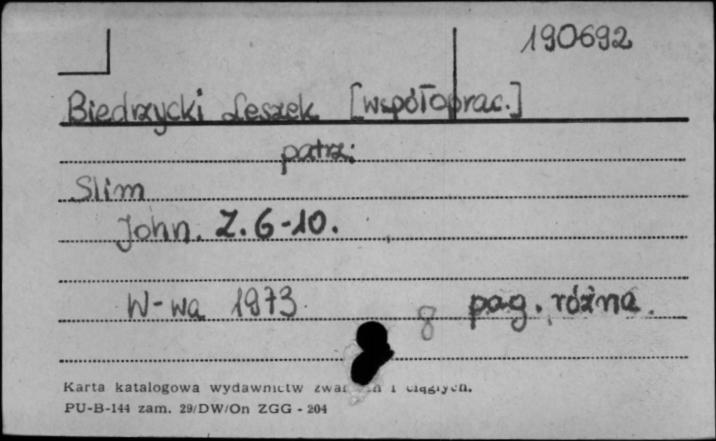 190692
Biedrzycki Leszek [współoprac.]
patrz:
Slim
John. Z. 6-10.
W-wa 1973. 8 pag. różna.
Karta katalogowa wydawnictw i ciągłych.
PU-B-144 zam. 29/DW/On ZGG - 204